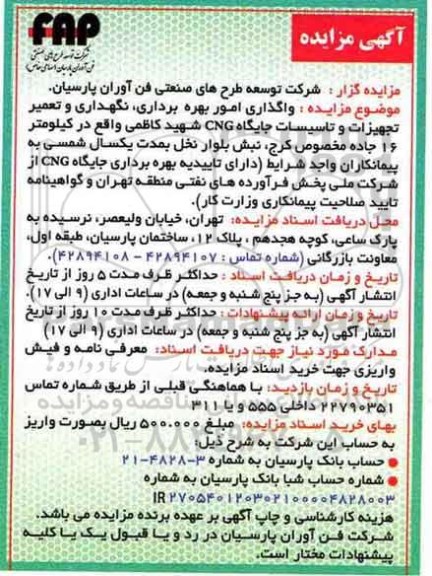 آگهی مزایده
FAP
شرکت توسعه طرح های صنعتی
فن آوران پارسیان (سهامی خاص)
مزایده گزار : شرکت توسعه طرح های صنعتی فن آوران پارسیان.
موضوع مزایده : واگذاری امور بهره برداری، نگهداری و تعمیر
تجهیزات و تاسیسات جایگاه CNG شهید کاظمی واقع در کیلومتر
۱۶ جاده مخصوص کرج، نبش بلوار نخل بمدت یکسال شمسی به
پیمانکاران واجد شرایط (دارای تاییدیه بهره برداری جایگاه CNG از
شرکت ملی پخش فرآورده های نفتی منطقه تهران و گواهینامه
تایید صلاحیت پیمانکاری وزارت کار).
محل دریافت اسناد مزایده: تهران، خیابان ولیعصر، نرسیده به
پارک ساعی، کوچه هجدهم ، پلاک ۱۲، ساختمان پارسیان، طبقه اول،
معاونت بازرگانی (شماره تماس : ۴۲۸۹۴۱۰۷ - ۴۲۸۹۴۱۰۸).
تاریخ و زمان دریافت اسناد : حداکثر ظرف مدت ۵ روز از تاریخ
انتشار آگهی (به جز پنج شنبه و جمعه) در ساعات اداری (۹ الی ۱۷).
تاریخ و زمان ارائه پیشنهادات : حداکثر ظرف مدت ۱۰ روز از تاریخ
انتشار آگهی (به جز پنج شنبه و جمعه) در ساعات اداری (۹ الی ۱۷)
مدارک مورد نیاز جهت دریافت اسناد: معرفی نامه و فیش
واریزی جهت خرید اسناد مزایده.
تاریخ و زمان بازدید: با هماهنگی قبلی از طریق شماره تماس
۲۲۷۹۰۳۵۱ داخلی ۵۵۵ و یا ۳۱۱
بهای خرید اسناد مزایده: مبلغ ۵۰۰.۰۰۰ ریال بصورت واریز
به حساب این شرکت به شرح ذیل:
● حساب بانک پارسیان به شماره ۳-۴۸۲۸-۲۱
● شماره حساب شبا بانک پارسیان به شماره
IR ۲۷۰۵۴۰۱۲۰۳۰۲۱۰۰۰۰۴۸۲۸۰۰۳
هزینه کارشناسی و چاپ آگهی بر عهده برنده مزایده می باشد.
شرکت فن آوران پارسیان در رد و یا قبول یک یا کلیه
پیشنهادات مختار است.